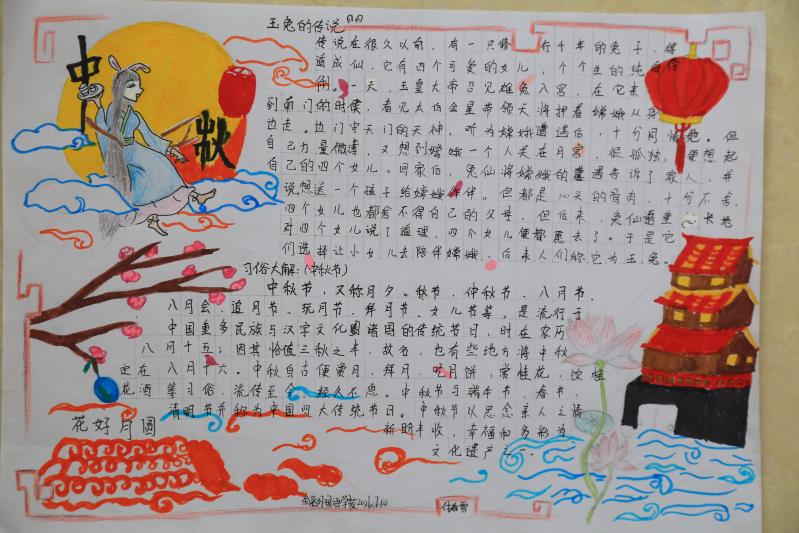 中
秋
玉兔的传说
传说在很久以前，有一只修行千年的兔子，得
道成仙，它有四个可爱的女儿，个个生的纯白伶
俐。一天，玉皇大帝召见雄兔入宫，在它来
到南门的时候，看见太白金星带领天将押着嫦娥从身
边走。
自己力量微薄，又想到嫦娥一个人关在月宫，很孤独，便想起
自己的四个女儿。回家后，兔仙将嫦娥的遭遇告诉了家人，并
说想送一个孩子给嫦娥作伴。但都是心头的骨肉，十分不舍，
四个女儿也都舍不得自己的父母，但后来，兔仙语重心长地
对四个女儿说了道理，四个女儿便都愿去了。于是它
们选择让小女儿去陪伴嫦娥，后来人们称它为玉兔。
习俗大解：(中秋节)
中秋节，又称月夕、秋节、仲秋节、八月节、
八月会、追月节、玩月节、拜月节、女儿节等，是流行于
中国重多民族与汉字文化圈诸国的传统节日，时在农历
八月十五；因其恰值三秋之半，故名，也有些地方将中秋
定在八月十六。中秋自古便赏月、拜月、吃月饼、赏桂花、饮桂
花酒等习俗，流传至今，经久不息。中秋节与端午节、春节、
清明节并称为中国四大传统节日。中秋节以思念亲人之情
祈盼丰收、幸福和多彩为
文化遗产之一。
花好月圆